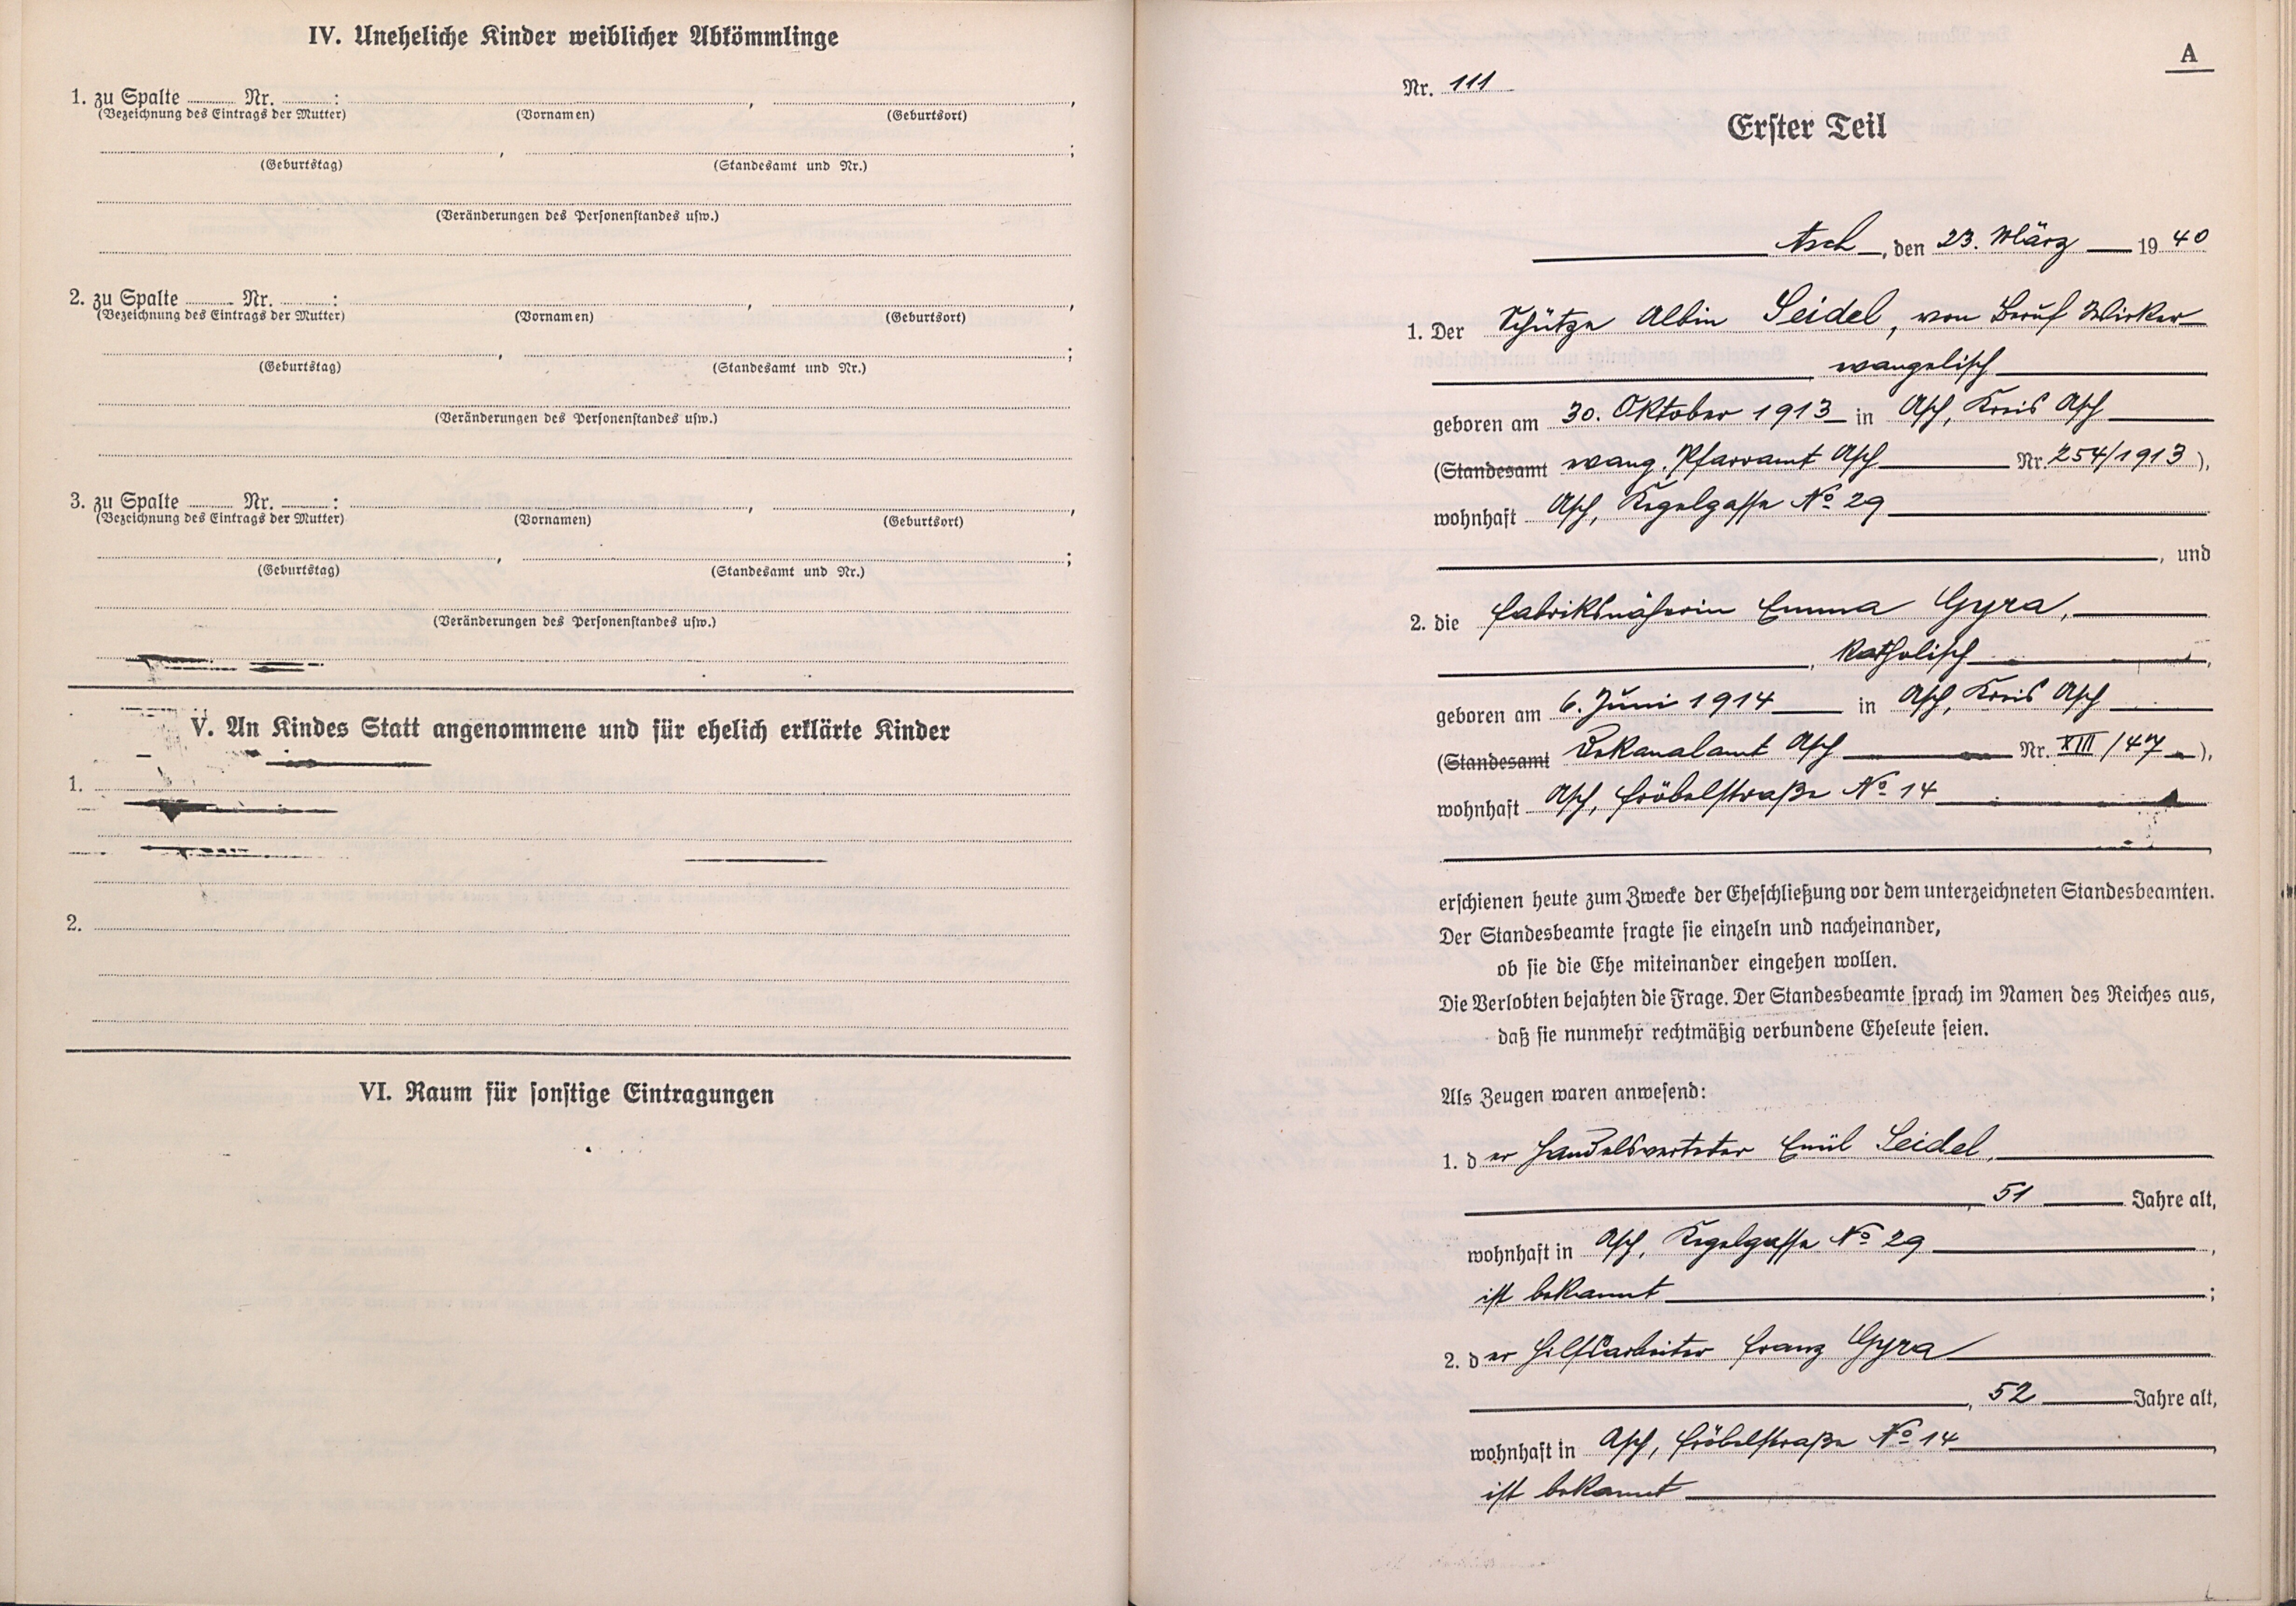 IV. Uneheliche Kinder weiblicher Abkömmlinge
1. zu Spalte ........ Nr. ........ :
(Bezeichnung des Eintrags der Mutter) (Vornamen) (Geburtsort)
(Geburtstag) (Standesamt und Nr.)
(Veränderungen des Personenstandes usw.)
2. zu Spalte ........ Nr. ........ :
(Bezeichnung des Eintrags der Mutter) (Vornamen) (Geburtsort)
(Geburtstag) (Standesamt und Nr.)
(Veränderungen des Personenstandes usw.)
3. zu Spalte ........ Nr. ........ :
(Bezeichnung des Eintrags der Mutter) (Vornamen) (Geburtsort)
(Geburtstag) (Standesamt und Nr.)
(Veränderungen des Personenstandes usw.)
V. An Kindes Statt angenommene und für ehelich erklärte Kinder
1.
2.
VI. Raum für sonstige Eintragungen
A
Nr. 111
Erster Teil
Asch, den 23. März 1940
1. Der Schütze Albin Seidel, von Beruf Wirker
evangelisch
geboren am 30. Oktober 1913 in Asch, Kreis Asch
(Standesamt evang. Pfarramt Asch Nr. 254/1913),
wohnhaft Asch, Kegelgasse No 29
, und
2. die Fabriksnäherin Emma Gyra,
, katholisch,
geboren am 6. Juni 1914 in Asch, Kreis Asch
(Standesamt Dekanalamt Asch Nr. XIII/47),
wohnhaft Asch, Fröbelstraße No 14
erschienen heute zum Zwecke der Eheschließung vor dem unterzeichneten Standesbeamten.
Der Standesbeamte fragte sie einzeln und nacheinander,
ob sie die Ehe miteinander eingehen wollen.
Die Verlobten bejahten die Frage. Der Standesbeamte sprach im Namen des Reiches aus,
daß sie nunmehr rechtmäßig verbundene Eheleute seien.
Als Zeugen waren anwesend:
1. der Handelsvertreter Emil Seidel,
, 51 Jahre alt,
wohnhaft in Asch, Kegelgasse No 29,
ist bekannt;
2. der Hilfsarbeiter Franz Gyra
, 52 Jahre alt,
wohnhaft in Asch, Fröbelstraße No 14,
ist bekannt